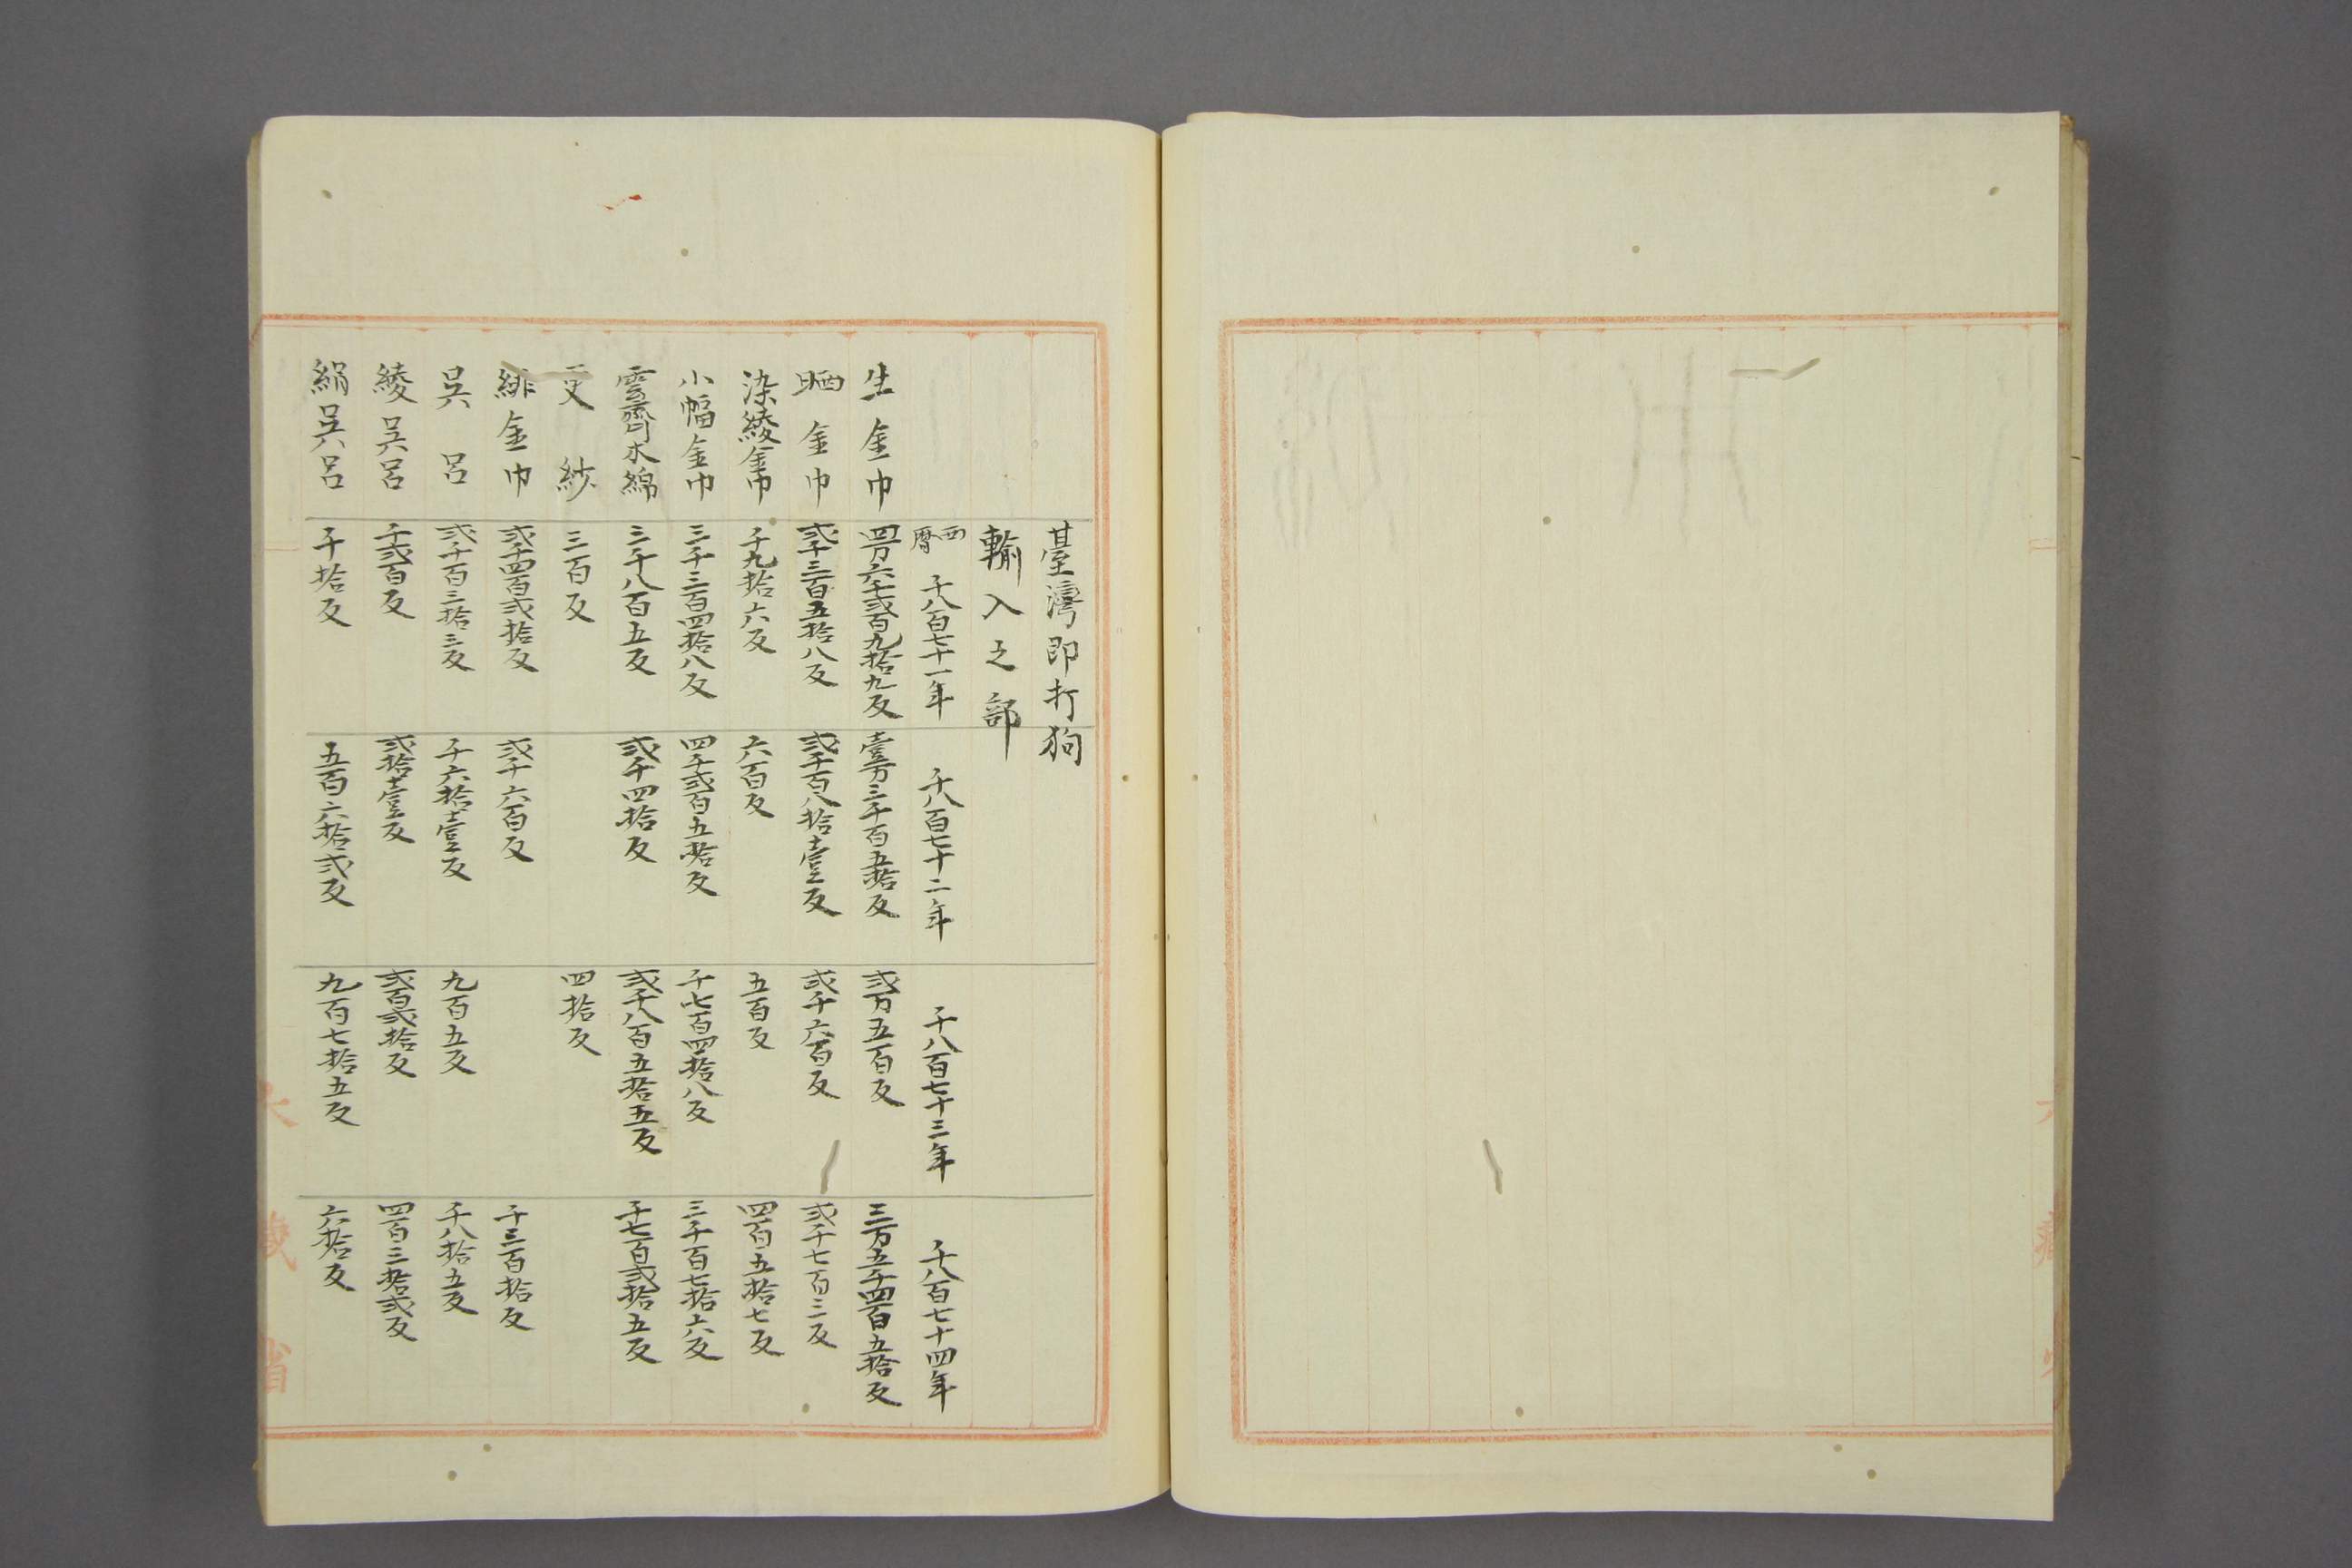 臺灣即打狗
輸入之部
西曆 千八百七十一年 千八百七十二年 千八百七十三年 千八百七十四年
生金巾 四万六千弐百九拾九反 壹万三千百五拾反 弐万五百反 三万五千四百五拾反
晒金巾 弐千三百五拾八反 弐千百八拾壹反 弐千六百反 弐千七百三反
染綾金巾 千九拾六反 六百反 五百反 四百五拾七反
小幅金巾 三千三百四拾八反 四千弐百五拾反 千七百四拾八反 三千百七拾六反
雲齊木綿 三千八百五反 弐千四拾反 弐千八百五拾五反 千七百弐拾五反
更紗 三百反 四拾反
緋金巾 弐千四百弐拾反 弐千六百反 千三百拾反
呉呂 弐千百三拾三反 千六拾壹反 九百五反 千八拾五反
綾呉呂 千弐百反 弐拾壹反 弐百弐拾反 四百三拾弐反
絹呉呂 千拾反 五百六拾弐反 九百七拾五反 六拾反